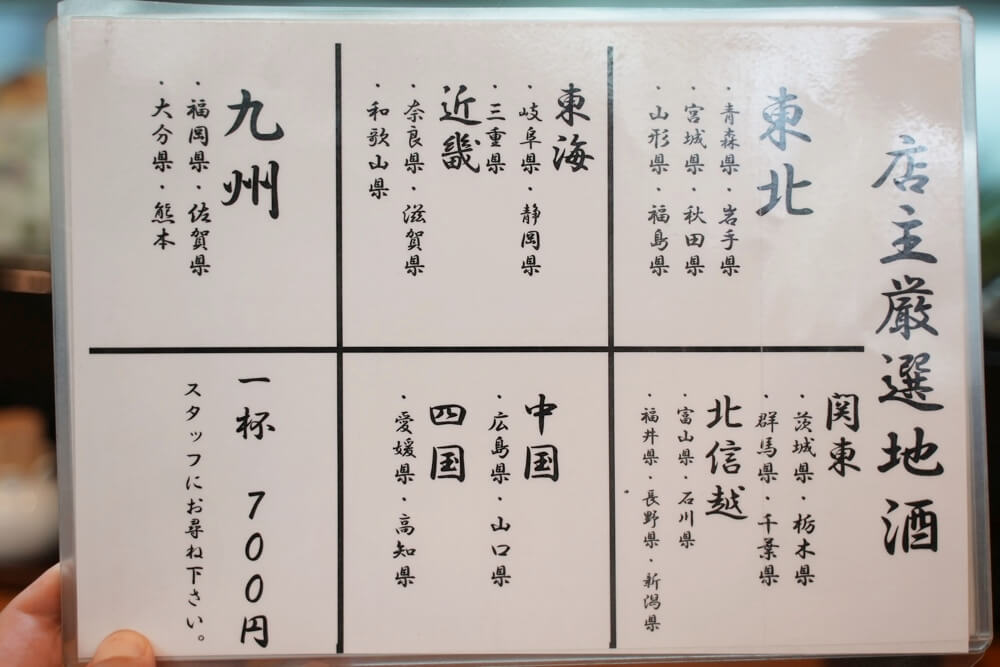 店主厳選地酒
東北
・青森県・岩手県
・宮城県・秋田県
・山形県・福島県
関東
・茨城県・栃木県
・群馬県・千葉県
北信越
・富山県・石川県
・福井県・長野県・新潟県
東海
・岐阜県・静岡県
・三重県
近畿
・奈良県・滋賀県
・和歌山県
中国
・広島県・山口県
四国
・愛媛県・高知県
九州
・福岡県・佐賀県
・大分県・熊本
一杯 700円
スタッフにお尋ね下さい。